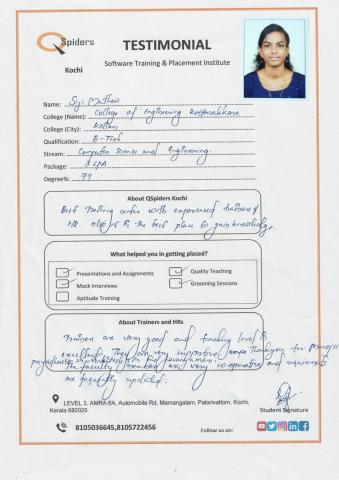 QSpiders
TESTIMONIAL
Kochi
Software Training & Placement Institute
Name: Siji Mathew
College (Name): College of Engineering Kottarakkara
College (City): Kollam
Qualification: B-Tech
Stream: Computer Science and Engineering.
Package: 3 LPA
Degree%: 79
About QSpiders Kochi
Best Training center with experienced trainers &
HR. also it is the best place to gain knowledge.
What helped you in getting placed?
Presentations and Assignments
Quality Teaching
Mock Interviews
Grooming Sessions
Aptitude Training
About Trainers and HRs
Trainers are very good and teaching level is
excellent. They are very supportive. Thankyou for
The faculty members are very co-operative and requirements
are frequently updated.
LEVEL 3, AMRA 6A, Automobile Rd, Mamangalam, Palarivattom, Kochi,
Kerala 682025
Student Signature
8105036645,8105722456
Follow us on: